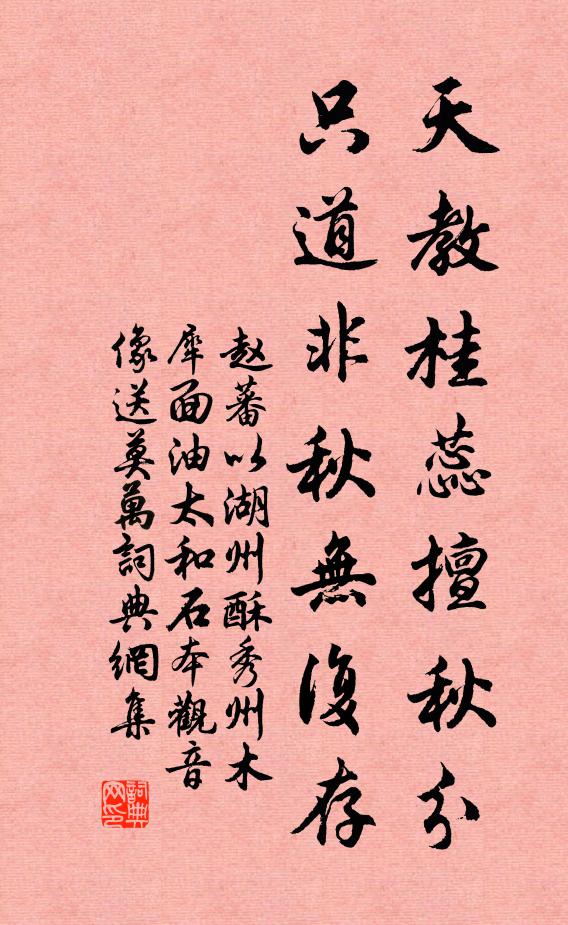 天教桂蕊擅秋分
只道非秋無復存
赵蕃以湖州酥秀州木
犀面油太和石本觀音
像送莫萬詞典網集
詞典网印